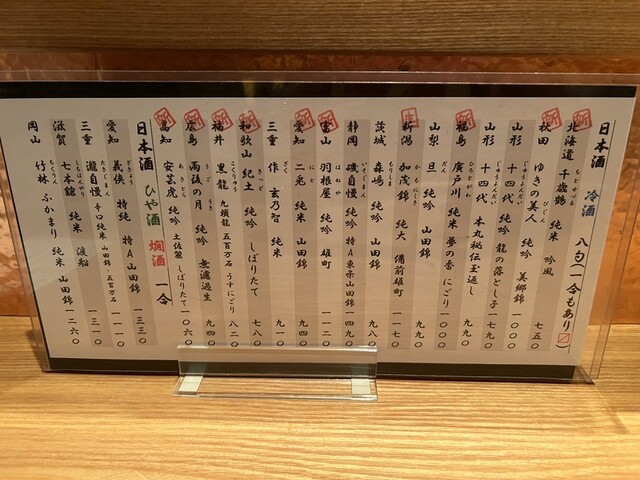 日本酒 冷酒 八勺(一合もあり〼)
新 北海道 千歳鶴 純米 吟風
新 秋田 ゆきの美人 純吟 七五〇
山形 十四代 純吟 美郷錦 一〇〇〇
山形 十四代 純吟 龍の落とし子 一一七〇
山形 十四代 本丸秘伝玉返し 九九〇
新 福島 廣戸川 純米 夢の香 にごり 一〇〇
山梨 旦 純吟 山田錦 九九〇
新潟 加茂錦 純大 備前雄町 一一七〇
茨城 森嶋 純吟 山田錦 九八〇
静岡 磯自慢 純吟 特A東条山田錦 一四九〇
新 富山 羽根屋 純吟 雄町 一一二〇
新 愛知 二兎 純米 山田錦 九四〇
三重 作 玄乃智 純米 九一〇
新 和歌山 紀土 純吟 しぼりたて 七八〇
新 福井 黒龍 九頭龍 五百万石 うすにごり 八二〇
新 広島 雨後の月 純吟 無濾過生 九四〇
新 高知 安芸虎 純吟 土佐麗 しぼりたて 一〇六〇
日本酒 ひや酒 燗酒 一合
愛知 義侠 特純 特A山田錦 一三三〇
三重 瀧自慢 辛口純米 山田錦・五百万石 一一一〇
滋賀 七本鎗 純米 渡船 一三一〇
岡山 竹林 ふかまり 純米 山田錦 一二六〇